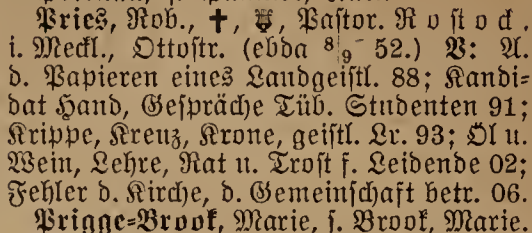 Pries, Rob., ✝, Pastor. Rostock.
i. Meckl., Ottostr. (ebda 8/9 52.) V: A.
d. Papieren eines Landgeistl. 88; Kandi-
dat Hand, Gespräche Tüb. Studenten 91;
Krippe, Kreuz, Krone, geistl. Lr. 93; Öl u.
Wein, Lehre, Rat u. Trost f. Leidende 02;
Fehler d. Kirche, d. Gemeinschaft betr. 06.
Prigge-Brook, Marie, s. Brook, Marie.